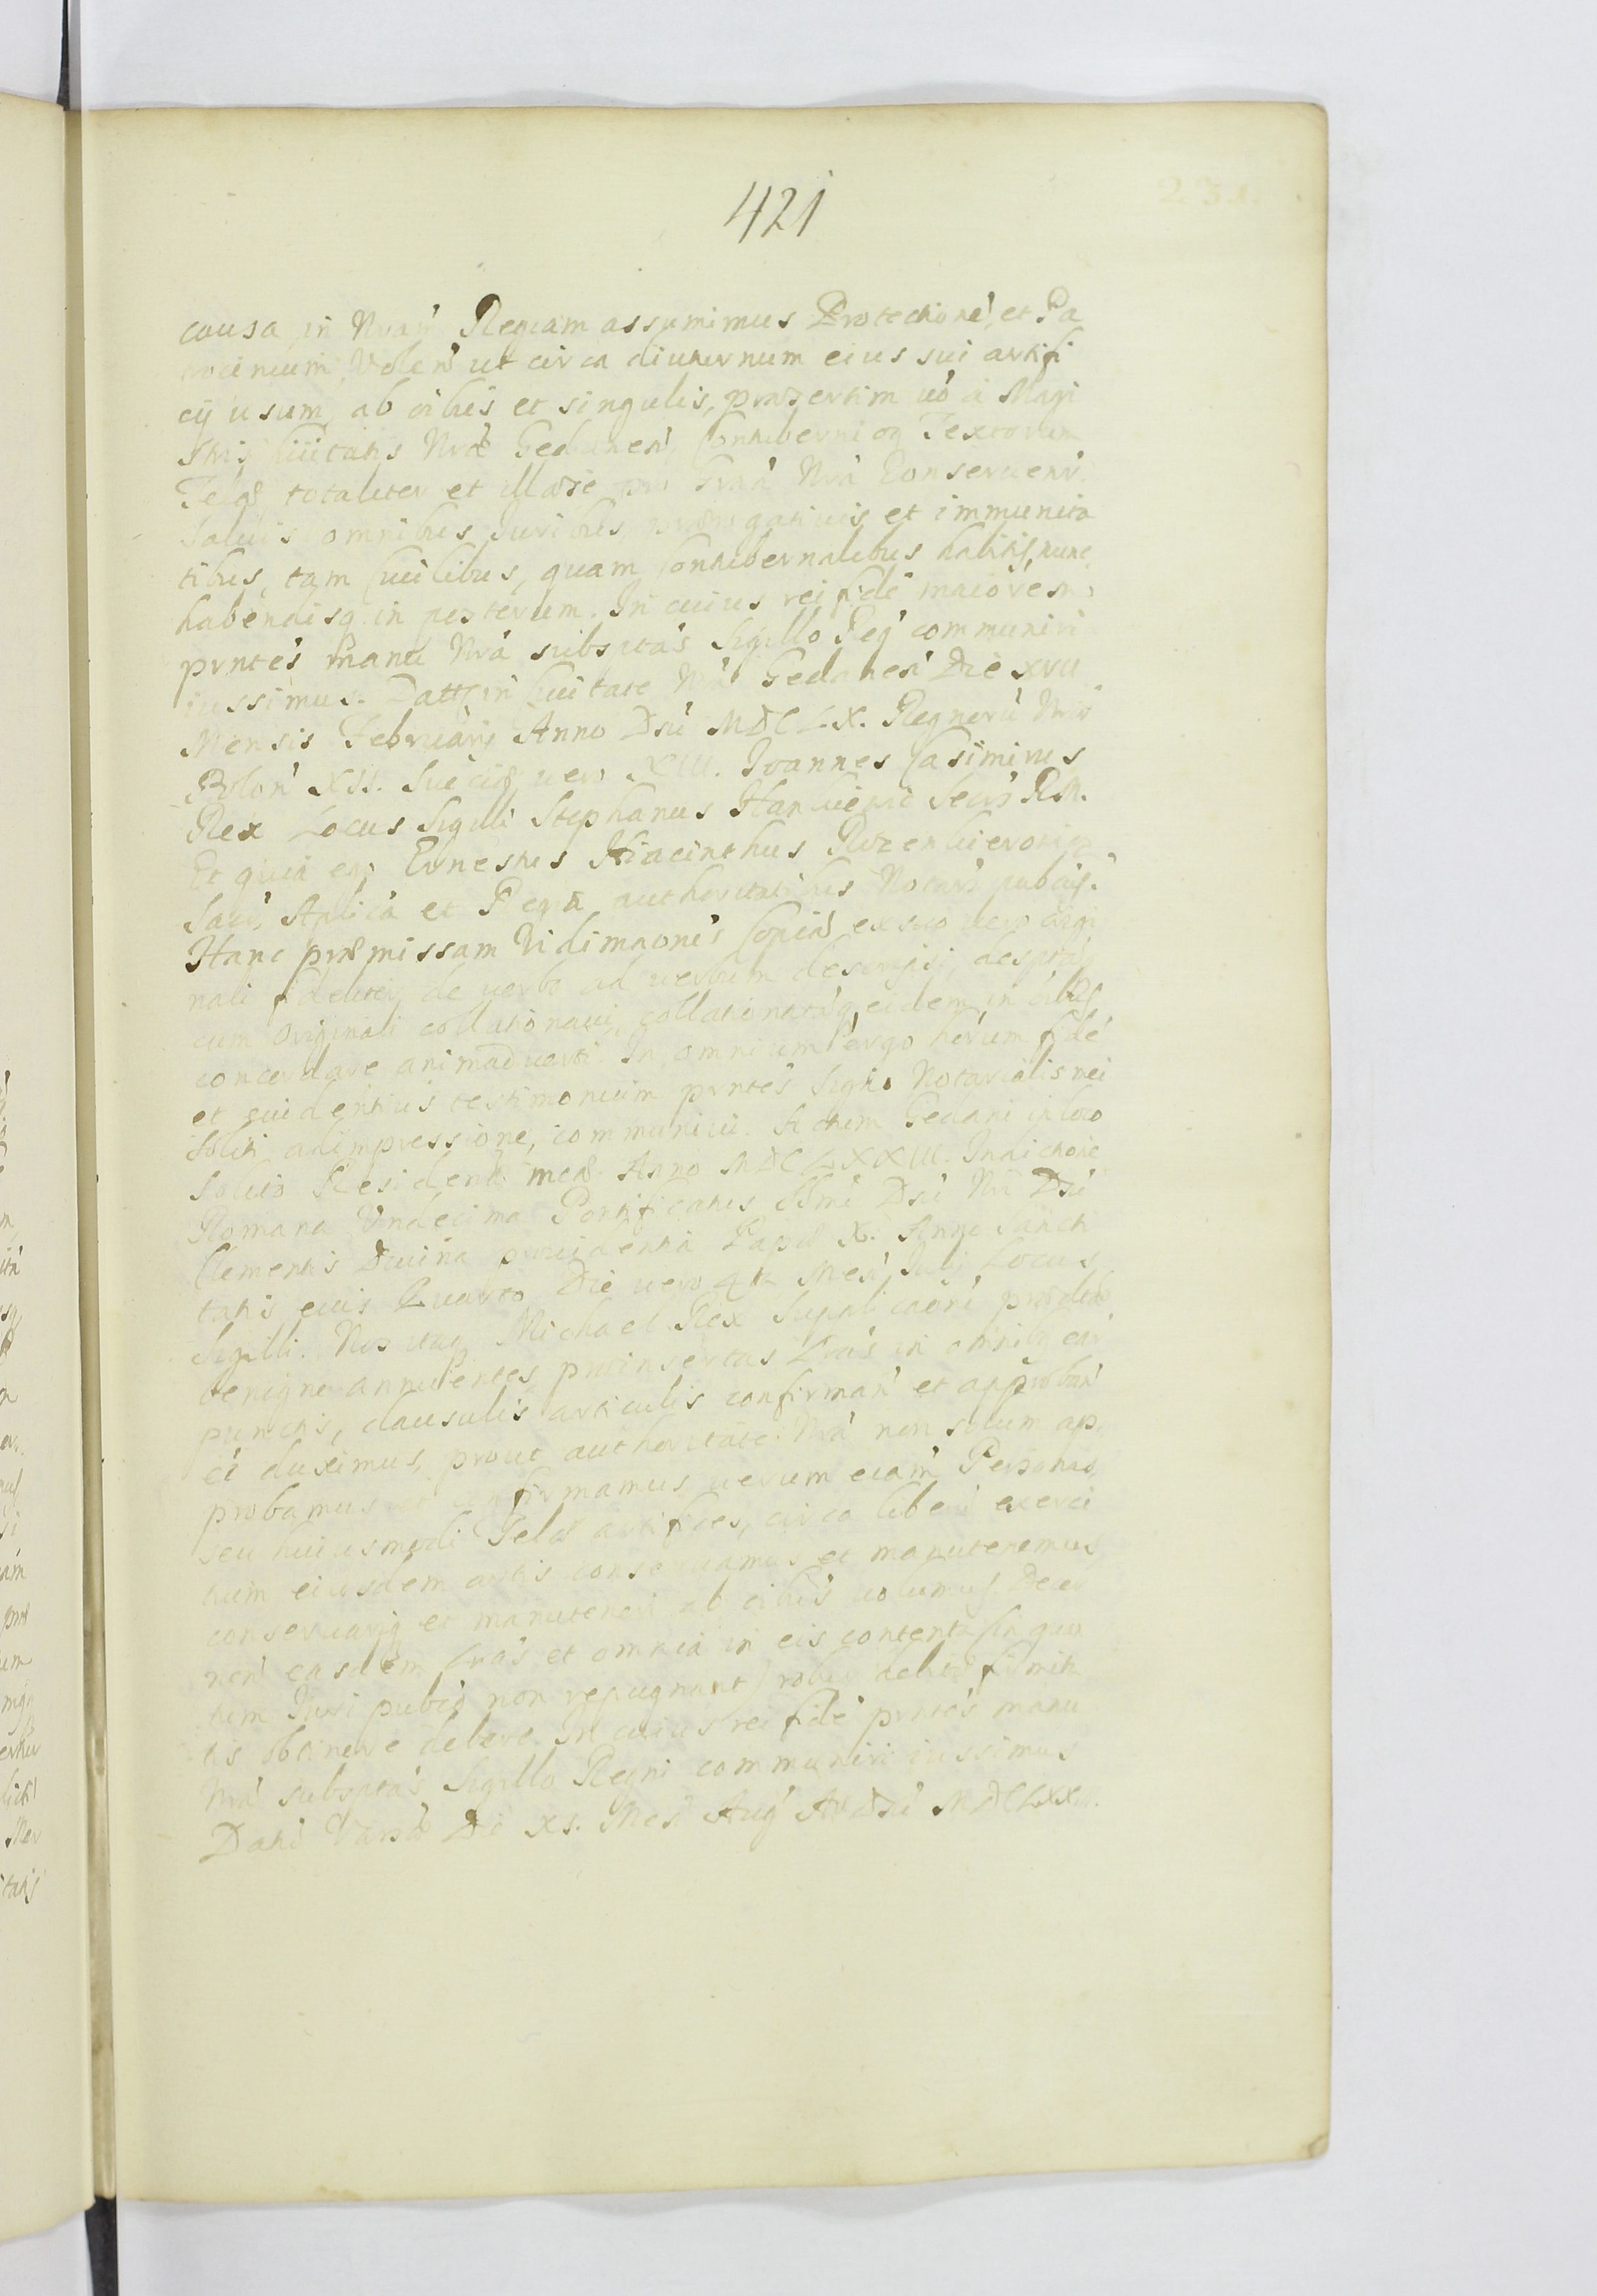 421
231.
causa in Nram Regiam assumimus Protectioné, et Pa
trocinium, Volen' ut circa diuturnum eius sui artifi
cij usum, ab oibus et singulis, præsertim uó à Magi
stris Ciuitatis Nræ Gedanen' Contubernioq Textorum
Telæ totaliter et illæse pro Gratia Nrá Conseruent'.
Saluis omnibus Juribus prærogatiuis et immunita
tibus, tam Ciuilibus, quam Contubernalibus habitis, nunc
habendisq. in posterum. In cuius rei fidé maioré
pnntes manu Nrá subscritás Sigillo Regí communiri
iussimus. Datt in Ciuitate Nrá Gedanen' Die XVII
Mensis Februarij Anno Dni MDCLX. Regnorú Nroꝝ
Polon' XII. Sueciæ uero XIII. Joannes Casimirus
Rex Locus Sigilli Stephanus Hankiewic Secrs RM.
Et quia ego Ernestus Hiacinthus
Sacr' Aplica et Regia authoritatibus Notars publis.
Hanc præmissam Vidimaonis Copiá ex suo uero origi
nali fideliter de uerbo ad uerbum descripsi,
cum Originali collationaui, collationatáq eidem in oibus
concordare animaduerti. In omnium ergo horum fidé
et euidentius testimonium pnntes Signo Notarialis mei
soliti adimpressione, communiui. Actum Gedani in loco
solitæ Residentiæ meæ Anno MDCLXXIII. Indictione
Romana Vndecima Pontificatus SSmi Dni Nri Dni
Clementis Diuina prouidentia Papæ X. Anno Sancti
tatis eius Quarto Die uero 4ta Men' Julij Locus
Sigilli. Nos itaq Michael Rex Supplicaoni prædtæ
benigne annuentes præinsertas Lrás in omnibq ear'
punctis, clausulis articulis confirman' et approban'
eé duximus, prout authoritate Nrá non solum ap
probamus et confirmamus uerum etiam Personas,
seu huiusmodi Telæ artifices, circa liberú exerci
tium eiusdem artis conseruamus et manutenemus
conseruariq et manuteneri ab oibus uolumus. Decer
nen' easdem Lrás et omnia in eis contenta (in quan
tum Juri publiq non repugnant) robur debitæ firmita
tis obtinere debere. In cuius rei fidé pnntes manu
Nrá subsptás Sigillo Regni communiri iussimus
Datú Varsæ Die XI. Men' Aug' A Dni MDCLXXIII.